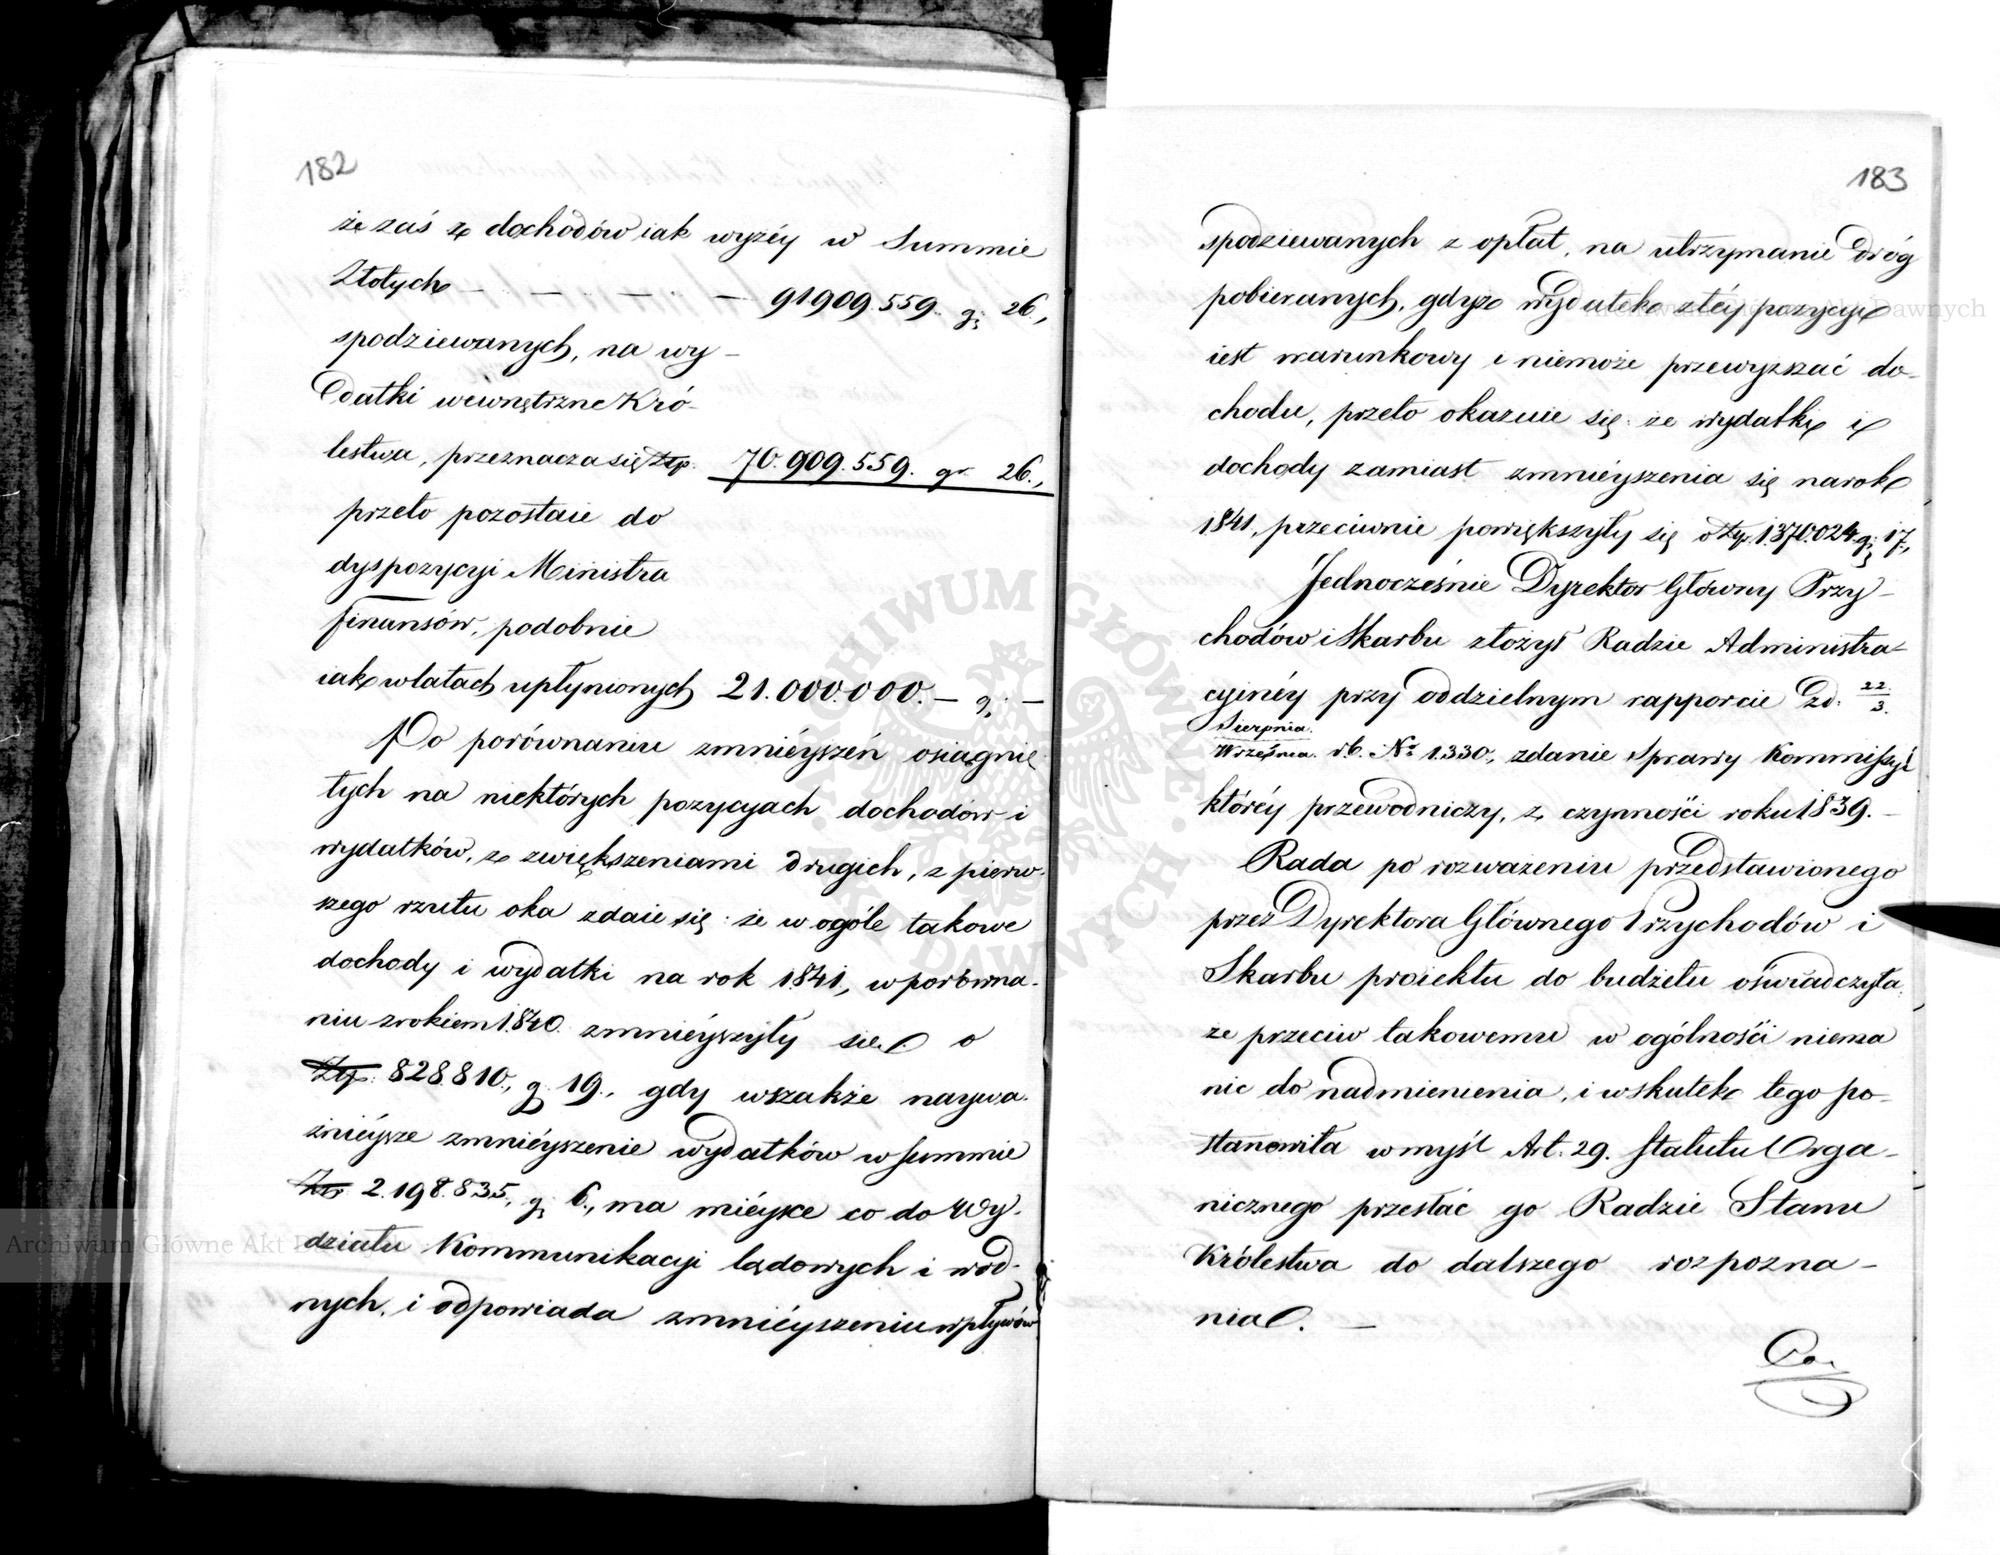 182
że zaś z dochodów iak wyżéy w Summie
Złotych — — — — 91909.559. g: 26.,
spodziewanych, na wy-
datki wewnętrzne Kró-
lestwa, przeznacza się Złp. 70.909.559. gr. 26.,
przeto pozostaie do
dyspozycyi Ministra
finansów, podobnie
iak w latach upłynionych 21.000.000. — g: —
Po porównaniu zmniéyszeń osiągnię-
tych na niektórych pozycyach dochodów i
wydatków, z zwiększeniami drugich, z pierw-
szego rzutu oka zdaie się: że w ogóle takowe
dochody i wydatki na rok 1841., w porówna-
niu z rokiem 1840. zmniéyszyły się o
Złp: 828.810., g: 19., gdy wszakże naywa-
żniéysze zmniéyszenie wydatków w summie
Złp 2.198.835., g: 6., ma mieysce co do Wy-
działu Kommunikacyi lądowych i wod-
nych, i odpowiada zmniéyszeniu wpływów
183
spodziewanych z opłat, na utrzymanie dróg
pobieranych, gdyż wydatek z téy pozycyi
iest warunkowy i niemoże przewyższać do-
chodu, przeto okazuie się: że wydatki i
dochody zamiast zmniéyszenia się na rok
1841., przeciwnie powiększyły się o Złp 1.370.024. g: 17.,
Jednocześnie Dyrektor Główny Przy-
chodów i Skarbu złożył Radzie Administra-
cyinéy przy oddzielnym rapporcie z d: 22/3.
Sierpnia./Września. r.b. Nº 1330., zdanie Sprawy Kommissyi
któréy przewodniczy, z czynności roku 1839. —
Rada po rozważeniu przedstawionego
przez Dyrektora Głównego Przychodów i
Skarbu proiektu do budżetu oświadczyła:
że przeciw takowemu w ogólności niema
nic do nadmienienia, i wskutek tego po-
stanowiła w myśl Art. 29. Statutu Orga-
nicznego przesłać go Radzie Stanu
Królestwa do dalszego rozpozna-
nia. —
ARCHIWUM GŁÓWNE AKT DAWNYCH
Archiwum Główne Akt Dawnych